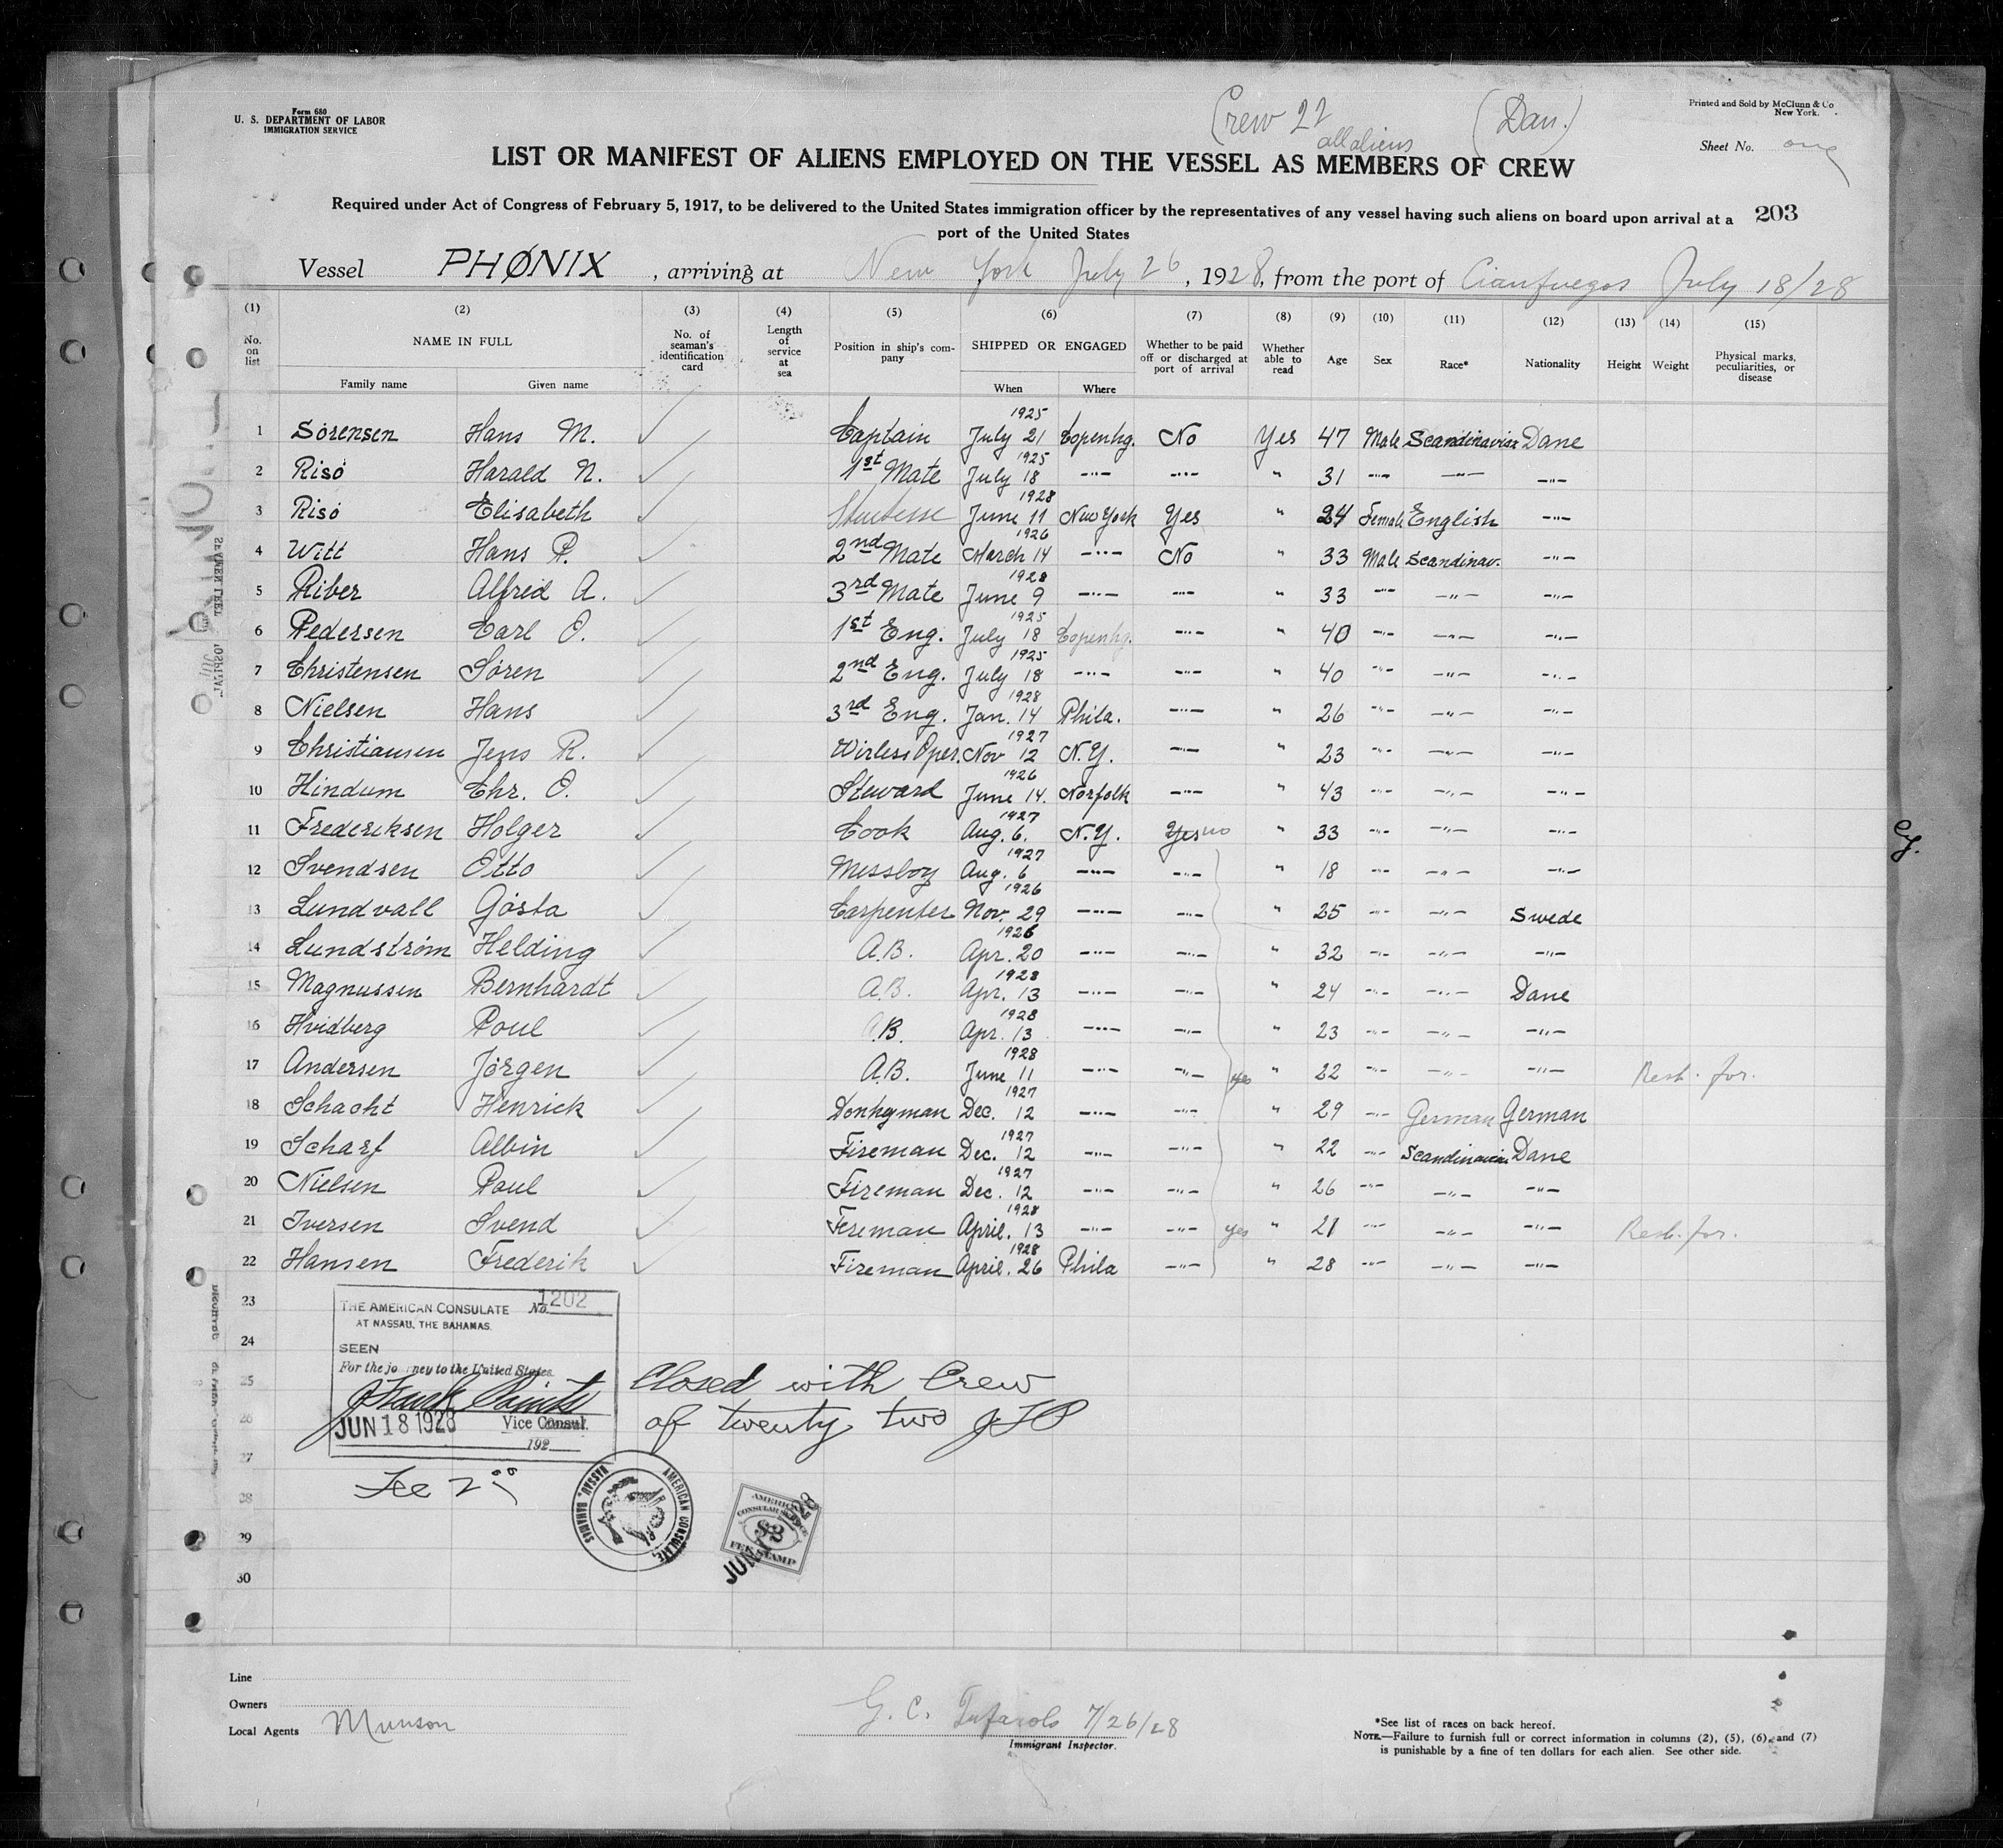 Form 680
U. S. DEPARTMENT OF LABOR
IMMIGRATION SERVICE
Crew 22
all aliens
(Dan.)
Printed and Sold by McClunn & Co
New York.
Sheet No. one
LIST OR MANIFEST OF ALIENS EMPLOYED ON THE VESSEL AS MEMBERS OF CREW
Required under Act of Congress of February 5, 1917, to be delivered to the United States immigration officer by the representatives of any vessel having such aliens on board upon arrival at a
port of the United States
203
Vessel PHØNIX, arriving at New York July 26, 1928, from the port of Cianfuegos July 18/28
(1) (2) (3) (4) (5) (6) (7) (8) (9) (10) (11) (12) (13) (14) (15)
No. on list
NAME IN FULL
Family name
Given name
No. of seaman's identification card
Length of service at sea
Position in ship's company
SHIPPED OR ENGAGED
When
Where
Whether to be paid off or discharged at port of arrival
Whether able to read
Age
Sex
Race*
Nationality
Height
Weight
Physical marks, peculiarities, or disease
1 Sörensen Hans M. ✓ Captain 1925 July 21 Copenhg. No Yes 47 Male Scandinavian Dane
2 Risö Harald N. ✓ 1st Mate 1925 July 18 -"- -"- " 31 -"- -"- -"-
3 Risö Elisabeth ✓ 1928 June 11 New York Yes " 24 Female English -"-
4 Witt Hans P. ✓ 2nd Mate 1926 March 14 -"- No " 33 Male Scandinav. -"-
5 Riber Alfred A. ✓ 3rd Mate 1928 June 9 -"- -"- " 33 -"- -"- -"-
6 Pedersen Carl O. ✓ 1st Eng. 1925 July 18 Copenhg. -"- " 40 -"- -"- -"-
7 Christensen Sören ✓ 2nd Eng. 1925 July 18 -"- -"- " 40 -"- -"- -"-
8 Nielsen Hans ✓ 3rd Eng. 1928 Jan. 14 Phila. -"- " 26 -"- -"- -"-
9 Christiansen Jens R. ✓ Wirless Oper. 1927 Nov 12 N.Y. -"- " 23 -"- -"- -"-
10 Hindum Chr. O. ✓ Steward 1926 June 14. Norfolk -"- " 43 -"- -"- -"-
11 Frederiksen Holger ✓ Cook 1927 Aug. 6. N.Y. Yes no " 33 -"- -"- -"-
12 Svendsen Otto ✓ Messboy 1927 Aug. 6 -"- -"- " 18 -"- -"- -"-
13 Lundvall Gösta ✓ Carpenter 1926 Nov. 29 -"- -"- " 25 -"- -"- Swede
14 Lundström Helding ✓ A.B. 1926 Apr. 20 -"- -"- " 32 -"- -"- -"-
15 Magnussen Bernhardt ✓ A.B. 1928 Apr. 13 -"- -"- " 24 -"- -"- Dane
16 Hvidberg Poul ✓ A.B. 1928 Apr. 13 -"- -"- " 23 -"- -"- -"-
17 Andersen Jörgen ✓ A.B. 1928 June 11 -"- -"- yes " 22 -"- -"- -"- for.
18 Schacht Henrick ✓ Donkyman 1927 Dec. 12 -"- -"- " 29 -"- German German
19 Scharf Albin ✓ Fireman 1927 Dec. 12 -"- -"- " 22 -"- Scandinavian Dane
20 Nielsen Poul ✓ Fireman 1927 Dec. 12 -"- -"- " 26 -"- -"- -"-
21 Iversen Svend ✓ Fireman 1928 April. 13 -"- -"- yes " 21 -"- -"- -"- for.
22 Hansen Frederik ✓ Fireman 1928 April. 26 Phila -"- " 28 -"- -"- -"-
23
24
25
26
27
28
29
30
THE AMERICAN CONSULATE No. 1202
AT NASSAU, THE BAHAMAS.
SEEN
For the journey to the United States
JUN 18 1928 Vice Consul.
192
Closed with Crew
of twenty two
Fee 2.00
AMERICAN CONSULATE, NASSAU, BAHAMAS
AMERICAN
CONSULAR SERVICE
$2
FEE STAMP
JUN
Line
Owners
Local Agents Munson
G. C. 7/26/28
Immigrant Inspector.
*See list of races on back hereof.
NOTE.—Failure to furnish full or correct information in columns (2), (5), (6), and (7)
is punishable by a fine of ten dollars for each alien. See other side.